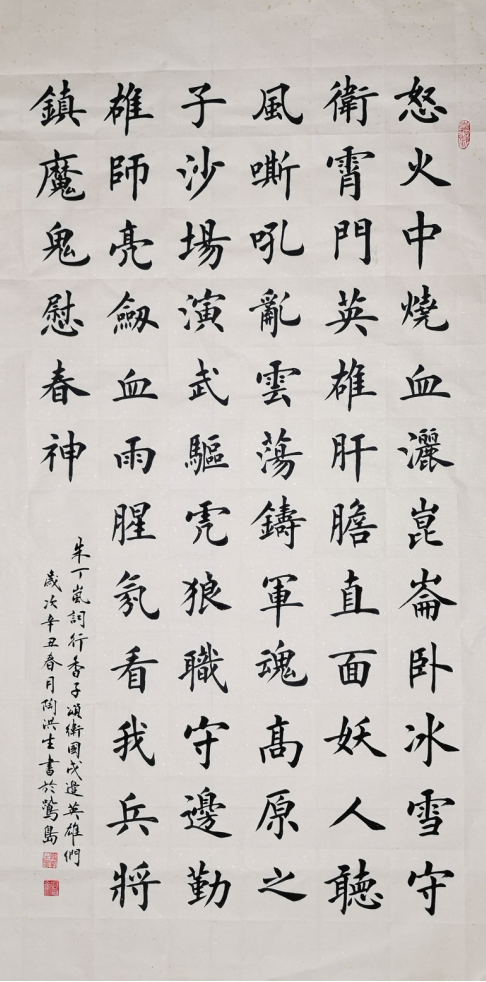 怒火中燒血灑崑崙卧冰雪守
衛霄門英雄肝膽直面妖人聽
風嘶吼亂雲蕩鑄軍魂高原之
子沙場演武驅虎狼職守邊勤
雄師亮劔血雨腥氛看我兵將
鎮魔鬼慰春神
朱丁嵐詞行香子頌衛國戍邊英雄們
歲次辛丑春月陶洪生書於鷺島